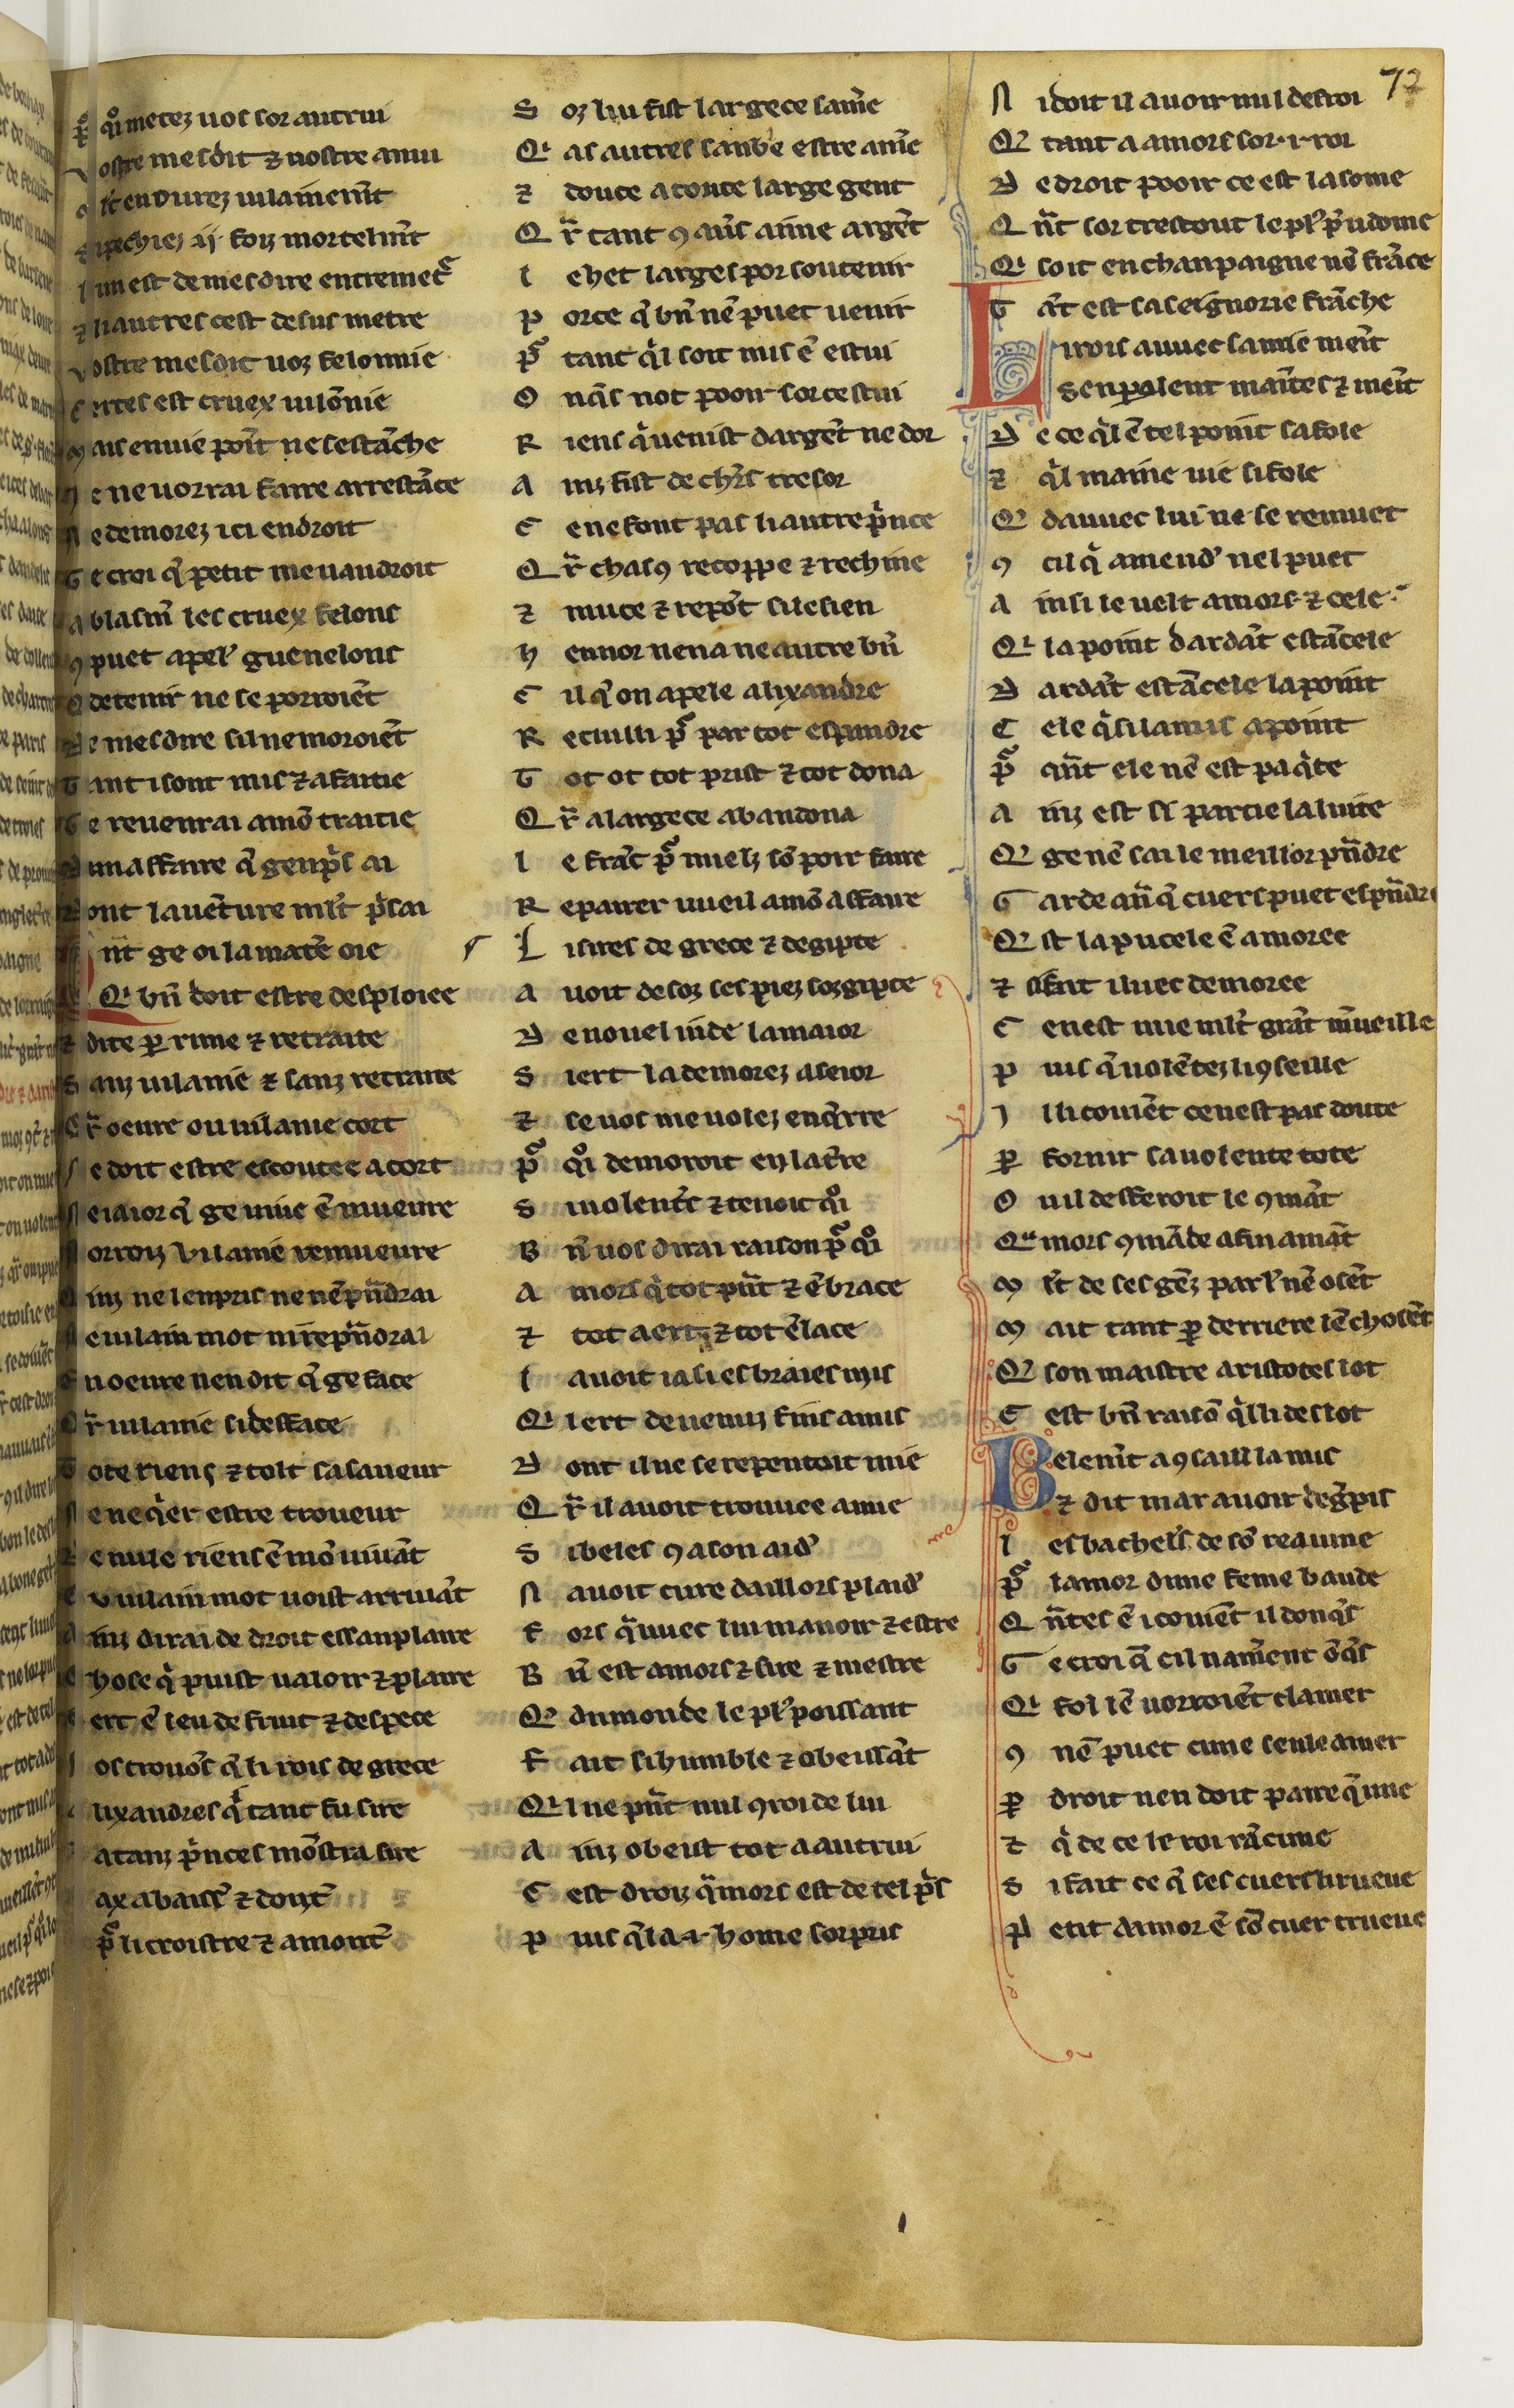 72
p̃ q̊i metez uos sor autrui
vostre mesdit ⁊ uostre anui
q̃ si endurez uilainem̃t
⁊ pechiez ·ij· foiz mortelm̃t
lun est de mesdire entremet̃
⁊ li autres cest desus metre
vostre mesdit uoz felonnie
certes est cruex uilõnie
mais enuie poĩt ne sestãche
ie ne uorrai faire arrestãce
ne demorez ici endroit
ge croi q̃ petit me uaudroit
a blasm̃ les cruex felons
ꝯ puet apel' guenelons
q̃ detenir ne se porroiẽt
de mesdire sil ne moroiẽt
tant i sont mis ⁊ afaitie
ge reuenrai a mõ traitie
dun affaire q̃ ge enpris ai
dont lauẽture ml't prisai
q̃nt ge oi la matẽ oie
Qi bñ doit estre desploiee
⁊ dite ꝑ rime ⁊ retraite
sanz uilanie ⁊ sanz retraite
q̃r oeure ou uilanie cort
ne doit estre escoutee a cort
ne ia ior q̃ ge uiue ẽ mueure
norroiz vilanie remueure
ainz ne lenpris ne nẽ pñdrai
ne uilain mot ni repñdrai
en oeure nen dit q̃ ge face
q̃r uilanie si desface
tote riens ⁊ tolt sa saueur
ne me q̃er estre troueur
de nule riens ẽ mõ uiuãt
v uilain mot uoist arriuãt
ainz dirai de droit essanplaire
chose q̃ puist ualoir ⁊ plaire
cert ẽ leu de fruit ⁊ despece
nos trouõs q̃ li rois de grece
alixandres q̃ tant fu sire
⁊ a tanz prĩces mõstra sire
ax abaiss' ⁊ dont̃
p̃ li croistre ⁊ amont̃
S oz lui fist largece sam̃e
Qi as autres sanble estre am̃e
⁊ douce a toute large gent
Q r̃ tant ꝯ au'ls aime argẽt
l e het larges por soutenir
p orce q̃ bñ nẽ puet uenir
p̃ tant q̃l soit mis ẽ estui
O nq̃s not pooir sor cestui
R iens q̃ uenist dargẽt ne dor
A inz fist de ch'rs tresor
C e ne font pas li autre prince
Q r̃ chasꝯ recoppe ⁊ rechine
⁊ muce ⁊ repõt si le sien
h ennor nen a ne autre bñ
C il q̃ on apele alixandre
R ecuilli p̃ par tot espandre
T ot ot tot prist ⁊ tot dona
Q r̃ a largece abandona
l e frãc p̃ mielz sõ poir faire
R epairer uueil a mõ affaire
L i sires de grece ⁊ degipte
A uoit desoz ses piez sozgipte
D e nouel inde la maior
S iert la demorez a seior
⁊ se uos me uolez enq̃rre
p̃ q̊i demoroit en la t'rre
S i uolent's ⁊ tenoit q̊i
B ñ uos dirai raison p̃ q̊i
A mors q̃ tot pñt ⁊ ẽbrace
⁊ tot aert ⁊ tot ẽlace
l auoit ia si es braies mis
Qi l ert deuenuz fins amis
D ont il ne se repentoit mie
Q r̃ il auoit trouuee amie
S i bele ꝯ a son aid'
N auoit cure daillors plaid'
F ors q̃uuec lui manoir ⁊ estre
B ñ est amors ⁊ sire ⁊ mestre
Q̃ du monde le pl' poissant
F ait si humble ⁊ obeissãt
Qi l ne pñt nul ꝯroi de lui
A inz obeist tot a autrui
C est droiz q̃mors est de tel pris
p uis q̃l a ·i· home sorpris
N i doit il auoir nul desroi
Q̃ tant a amors sor ·i· roi
D e droit pooir ce est la some
Q nt̃ sor trestout le pl' p̃udome
Qi soit en chanpaigne nẽ frãce
T ãt est sa seignorie frãche
L i rois auuec samie meĩt
s en parolent maĩtes ⁊ meĩt
D e ce q̃l ẽ tel point safole
⁊ q̃l maine uie si fole
Q̃ dauuec lui ne se remuet
ꝯ cil q̃ amend' nel puet
A insi le uelt amors ⁊ cele
Qi la point dardãt estãcele
D ardãt estãcele la point
C ele q̃ si la mis a point
p̃ q̃nt ele nẽ est pas q̃te
A inz est si partie la luite
Q̃ ge nẽ sai le meillor pñdre
G arde añ q̃ cuers puet espñdre
Q̃ st la pucele ẽ amoree
⁊ sifait iluec demoree
C e nest mie ml't grãt m̃ueille
p uis q̃ uolẽtez li ꝯseille
i l li couiẽt ce nest pas doute
ꝑ fornir sa uolente tote
O u il desferoit le ꝯmãt
Qu mors ꝯmãde a fin amãt
m l't de ses gẽz parl' nẽ osẽt
m ait tant ꝑ derriere lẽ chosẽt
Q̃ son maistre aristotes lot
C est bñ raisõ q̃l li deslot
B elemẽt a ꝯsaill la mis
⁊ dit mar auoir deg̃pis
l es bachel's de sõ reaume
p̃ lamor dune feme baude
Q ñtes ẽ i couiẽt il donq̃s
G e croi q̃ cil nam̃ent õq̃s
Qi fol lẽ uorroiẽt clamer
ꝯ nẽ puet cune seule amer
ꝑ droit nen doit plaire q̃ une
⁊ q̃ de ce le roi rãcune
S i fait ce q̃ ses cuers li rueue
p etit damor ẽ sõ cuer trueue